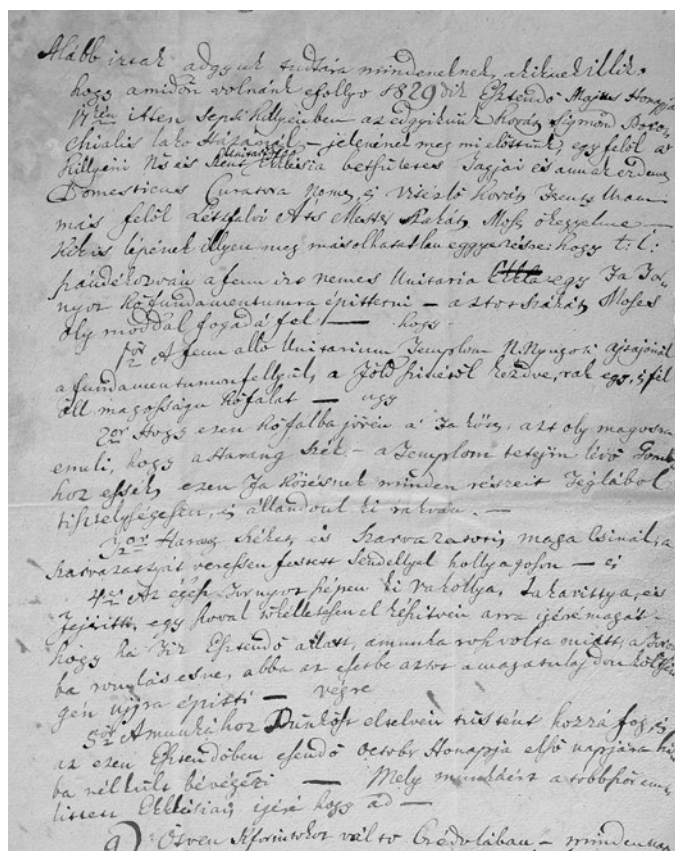 Alább irtak adgyuk tudtára mindeneknek, akiknek illik,
hogy amidőn volnánk efollyo 1829dik Esztendő Majus Honapja
17kén itten Sepsi Killyénben az edgyikünk Kováts Sigmond Paro
chialis lako Házánál – jelenének meg mi előttünk, egy felől a
Killyéni Ns és Szent Unitaria Ekklésia betsületes Tagjai és annak érdemes
Domesticus Curatora Nemes és Vitézlő Kováts Ferentz Uram
más felől Létzfalvi Áts Mester Szakáts Moses ő kegyelme —
Kik is lépének illyen meg másolhatatlan eggyezésre: hogy t: i:
szándékozván a fenn irt nemes Unitaria egy Fa Tor
nyot kőfundamentumra épittetni – aztot Szakáts Moses
oly móddal fogadá fel! — hogy
1ör A fenn álló Unitarium Templom N.Nyugoti ajtajánál
a fundamentumon fellyül, a Föld szinétől kezdve, rak egy, s fél
öll magosságu Kőfalat — ugy
2or Hogy ezen kőfalba jövén a' Fa köz, azt oly magosra
emeli, hogy a Harang Szék – a Templom tetején lévő Gomb
hoz essék, ezen Fa közésnek minden részeit Téglából
tisztességesen, és állandoul ki rakván. —
3or Harang széket, és Szarvazatot is, maga tsinál, a
Szarvazattyát veressen festett Sendellyel hollyagoson – és
4er Az egész Tornyot szépen ki vakollya, takarittya, és
Fejéritti, egy szoval tökélletesen el készitvén arra igéré magát
hogy ha Tiz Esztendő alatt, a munka rosz volta miatt, a Torony
ba romlás esne, abba az esetbe aztot a maga tulajdon költsé
gén ujjra épitti — végre
5ör A munkához Pünköst eltelvén tüstént hozzá fog, és
az ezen Esztendőben esendő octobr Honapja első napjára hi
ba nélkült bévégezi — Mely munkáért a többször em
littett Ekklésia is, igéré hogy ad —
a) Ötven Rforintokot váltó Czédolában – minden